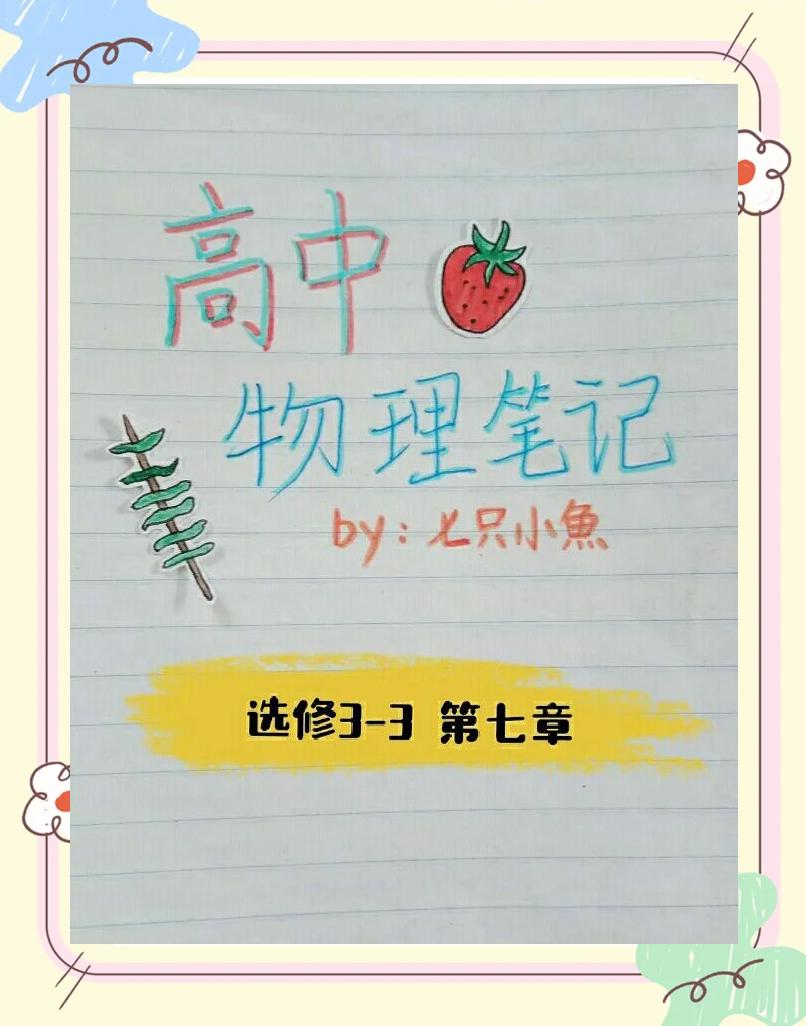 高中
物理笔记
by:七只小魚
选修3-3 第七章